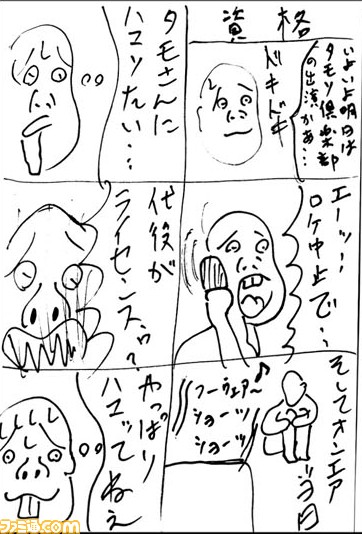 資格
いよいよ明日は
タモリ倶楽部
の出演かぁ…
ドキドキ
エーッ!!
ロケ中止で…
そしてオンエア
当日
フーウェアー
ショーツ
ショーツ
♪
タモさんに
ハマリたい…
代役が
ライセンス
やっぱり
ハマってねぇ
ファミ通.com